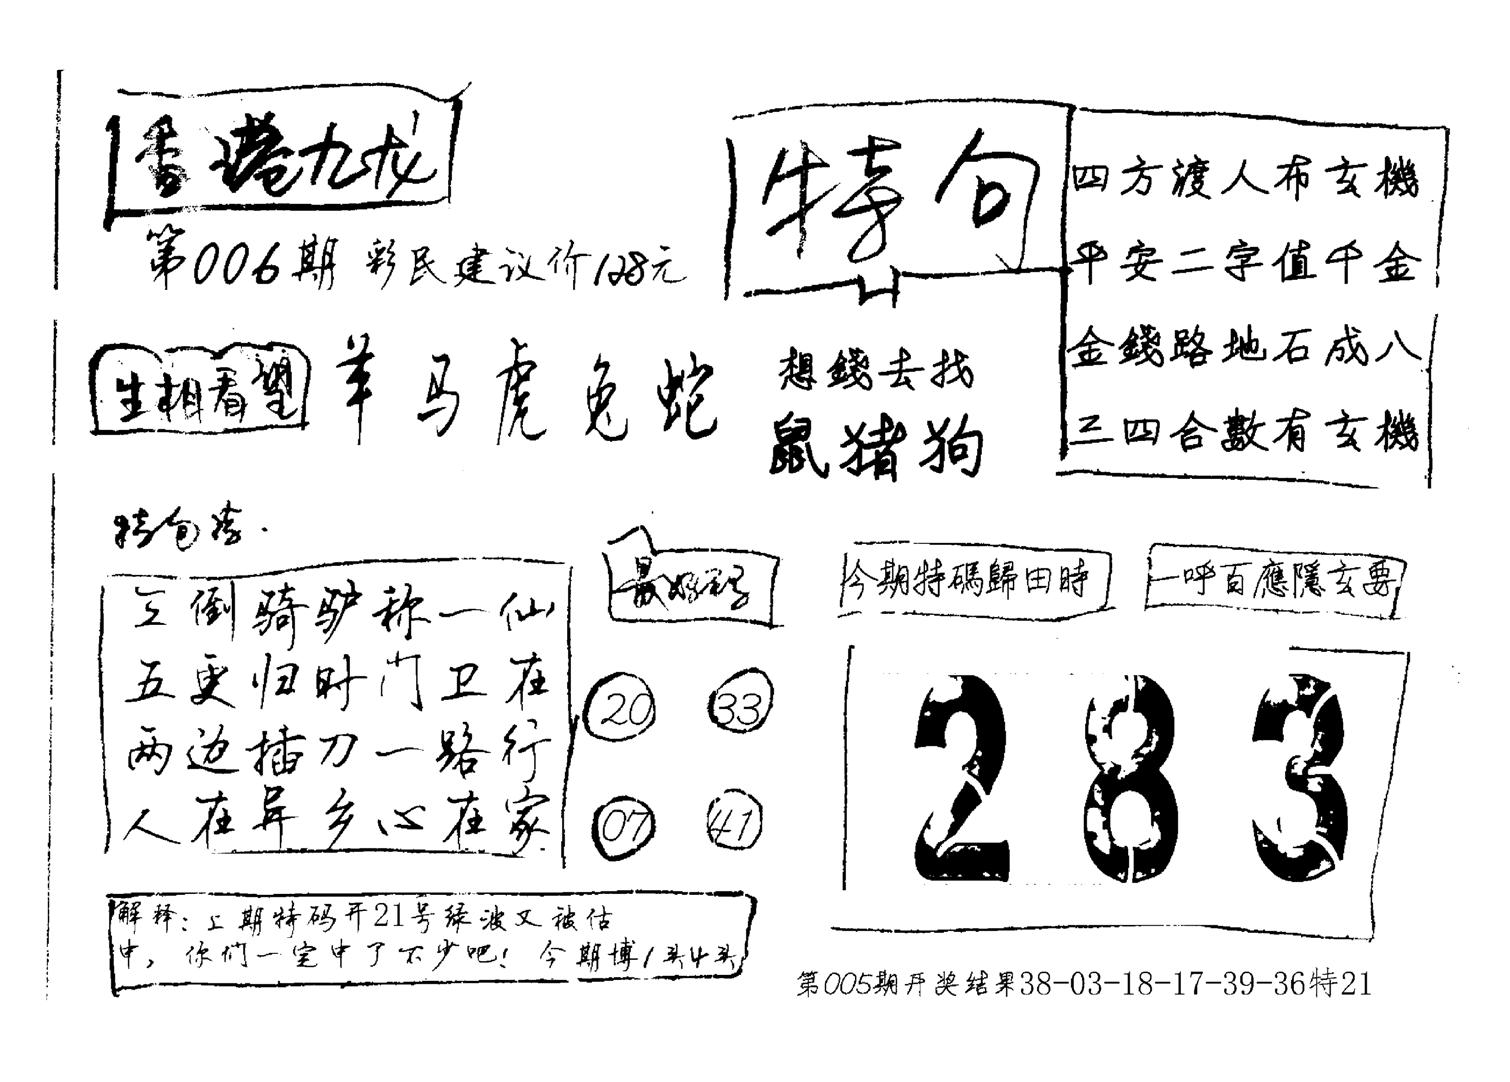 香港九龙
第006期 彩民建议价128元
特句
四方渡人布玄機
平安二字值千金
金錢路地石成八
三四合數有玄機
生相看望
羊马虎兔蛇
想錢去找
鼠猪狗
倒骑驴称一仙
五更归时门卫在
两边插刀一路行
人在异乡心在家
最好码
20 33
07 41
今期特碼歸田時
一呼百應隱玄要
283
解释:上期特码开21号绿波又被估
中,你们一定中了不少吧!今期博1头4头
第005期开奖结果38-03-18-17-39-36特21